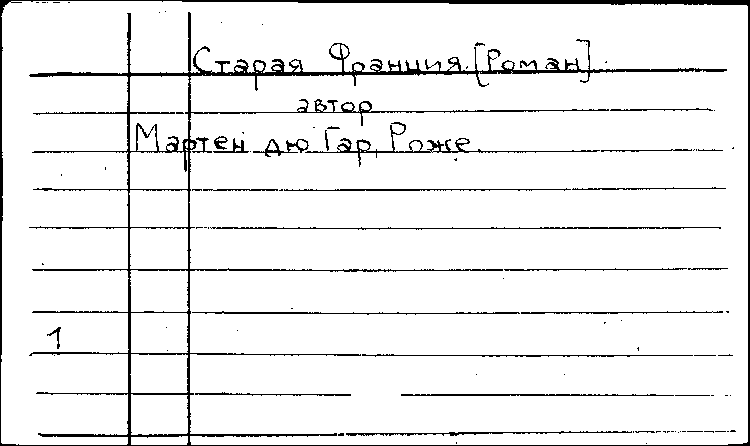 Старая Франция. [Роман].
автор
Мартен дю Гар, Роже.
1